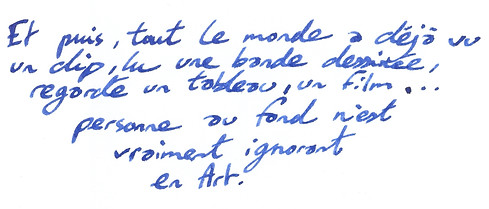 Et puis, tout le monde a déjà vu
un clip, lu une bande dessinée,
regardé un tableau, un film...
personne au fond n'est
vraiment ignorant
en Art.